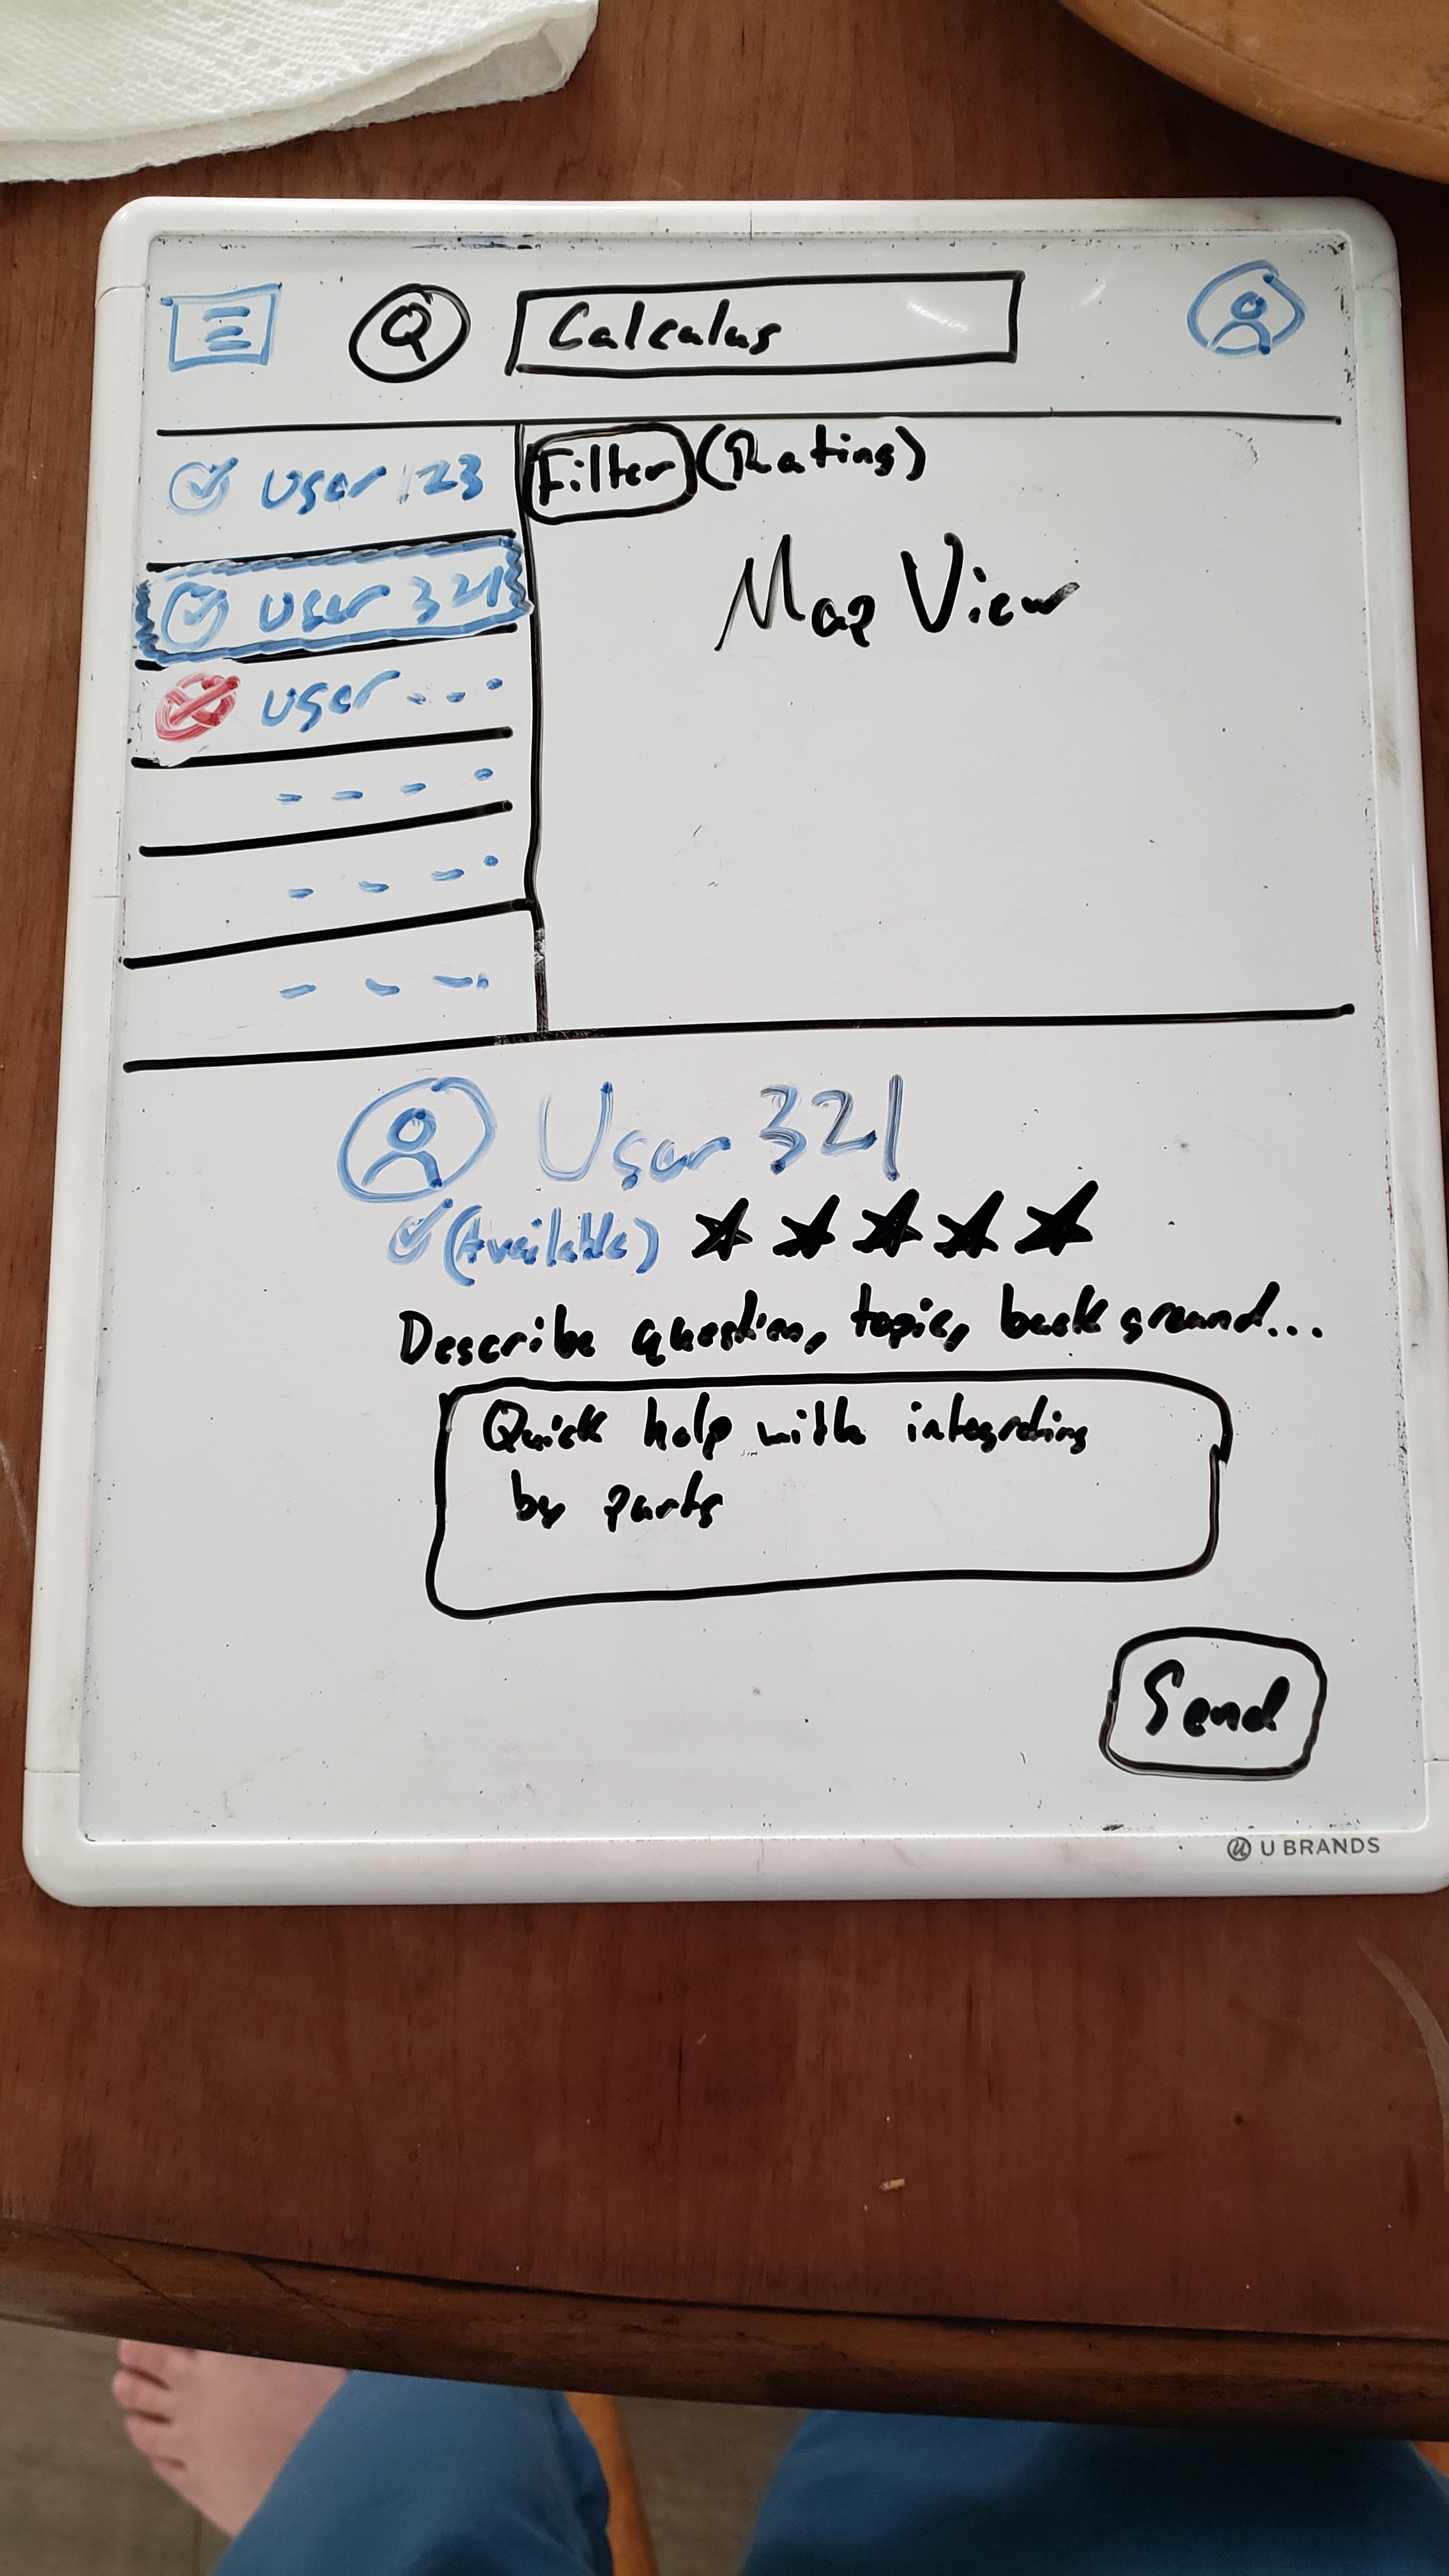 Calculus
User 123
Filter (Rating)
User 321
Map View
User ...
User 321
(Available)
Describe question, topic, background...
Quick help with integrating
by parts
Send
U BRANDS